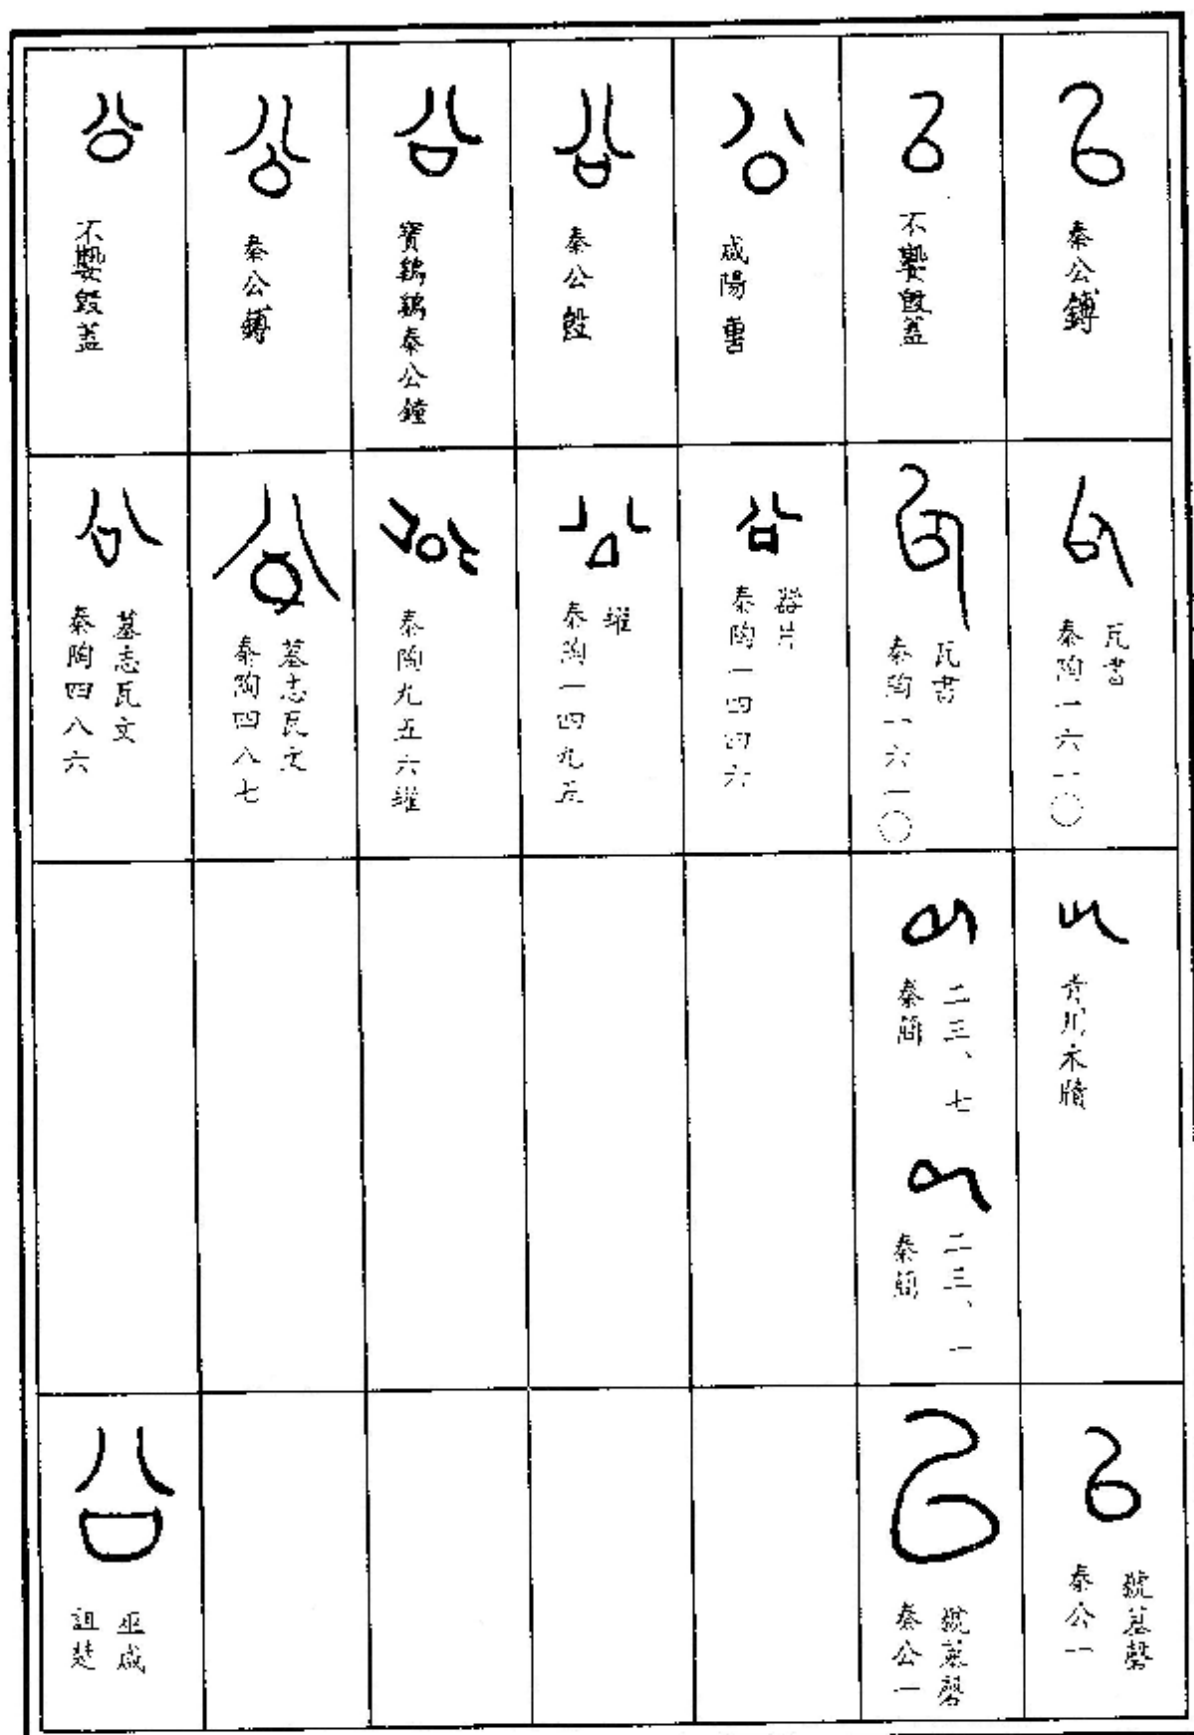 秦公鎛
不𡢁𣪘蓋
咸陽䵼
秦公𣪘
寶鷄鷄秦公鐘
秦公鎛
不𡢁𣪘蓋
瓦書
秦陶一六一〇
瓦書
秦陶一六一〇
器片
秦陶一四四六
罐
秦陶一四九五
秦陶九五六罐
墓志瓦文
秦陶四八七
墓志瓦文
秦陶四八六
青川木牘
二三、七
秦簡
二三、一
秦簡
號墓磬
秦公一
號墓磬
秦公一
巫咸
詛楚